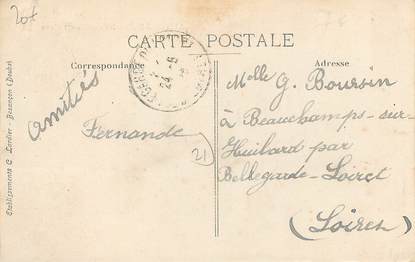 20f
CARTE POSTALE
Correspondance
Adresse
amitiés
Fernande
21
Melle G. Boursin
à Beauchamps-sur-
Huilard par
Bellegarde-Loiret
(Loiret)
Etablissements C. Lardier - Besançon (Doubs)